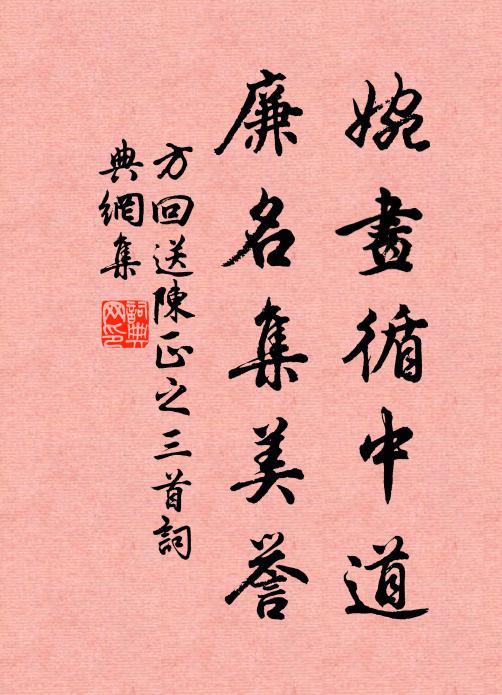 婉畫循中道
廉名集美譽
方回送陳正之三首詞
典網集
詞典網印